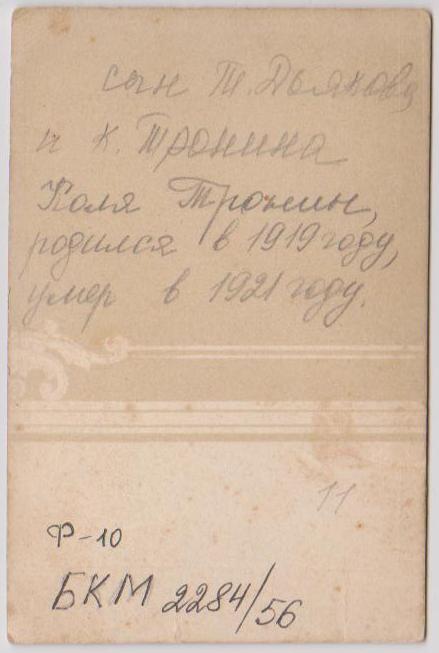 сын Т. Дьякова
и К. Тронина
Коля Тронин,
родился в 1919 году,
умер в 1921 году.
11
Ф-10
БКМ 2284/56